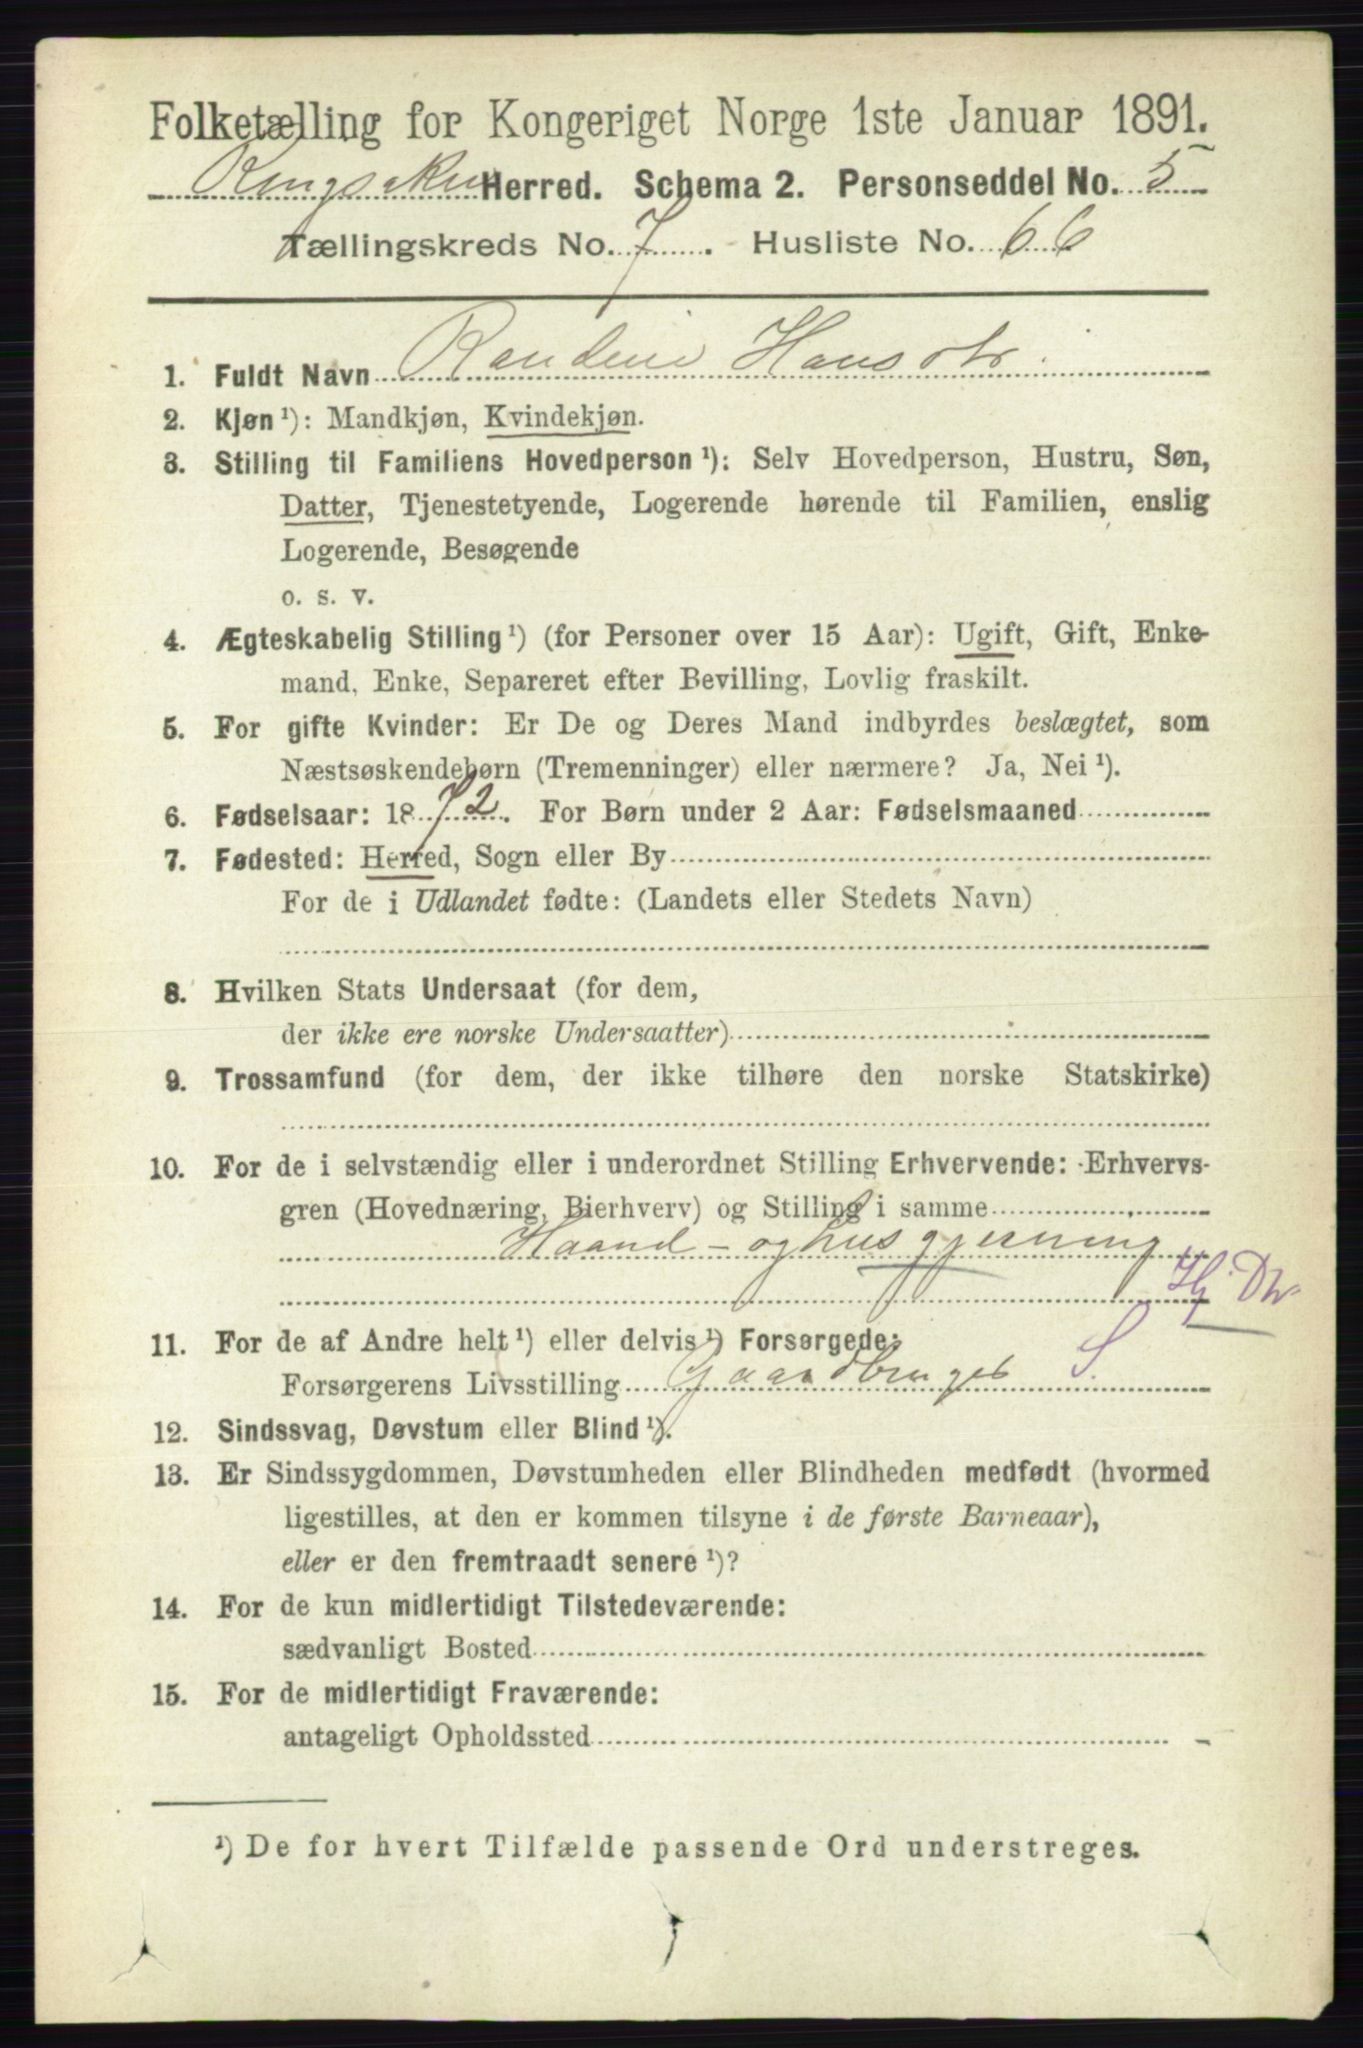 Folketælling for Kongeriget Norge 1ste Januar 1891.
Ringsaker Herred. Schema 2. Personseddel No. 5
Tællingskreds No. 7. Husliste No. 66
1. Fuldt Navn Randine Hansdtr.
2. Kjøn ¹): Mandkjøn, Kvindekjøn.
3. Stilling til Familiens Hovedperson ¹): Selv Hovedperson, Hustru, Søn,
Datter, Tjenestetyende, Logerende hørende til Familien, enslig
Logerende, Besøgende
o. s. v.
4. Ægteskabelig Stilling ¹) (for Personer over 15 Aar): Ugift, Gift, Enke-
mand, Enke, Separeret efter Bevilling, Lovlig fraskilt.
5. For gifte Kvinder: Er De og Deres Mand indbyrdes beslægtet, som
Næstsøskendebørn (Tremenninger) eller nærmere? Ja, Nei ¹).
6. Fødselsaar: 1872. For Børn under 2 Aar: Fødselsmaaned
7. Fødested: Herred, Sogn eller By
For de i Udlandet fødte: (Landets eller Stedets Navn)
8. Hvilken Stats Undersaat (for dem,
der ikke ere norske Undersaatter)
9. Trossamfund (for dem, der ikke tilhøre den norske Statskirke)
10. For de i selvstændig eller i underordnet Stilling Erhvervende: Erhvervs-
gren (Hovednæring, Bierhverv) og Stilling i samme
Haand- og husgjerning
Hj. Dtr
11. For de af Andre helt ¹) eller delvis ¹) Forsørgede:
Forsørgerens Livsstilling Gaardbruger S.
12. Sindssvag, Døvstum eller Blind ¹).
13. Er Sindssygdommen, Døvstumheden eller Blindheden medfødt (hvormed
ligestilles, at den er kommen tilsyne i de første Barneaar),
eller er den fremtraadt senere ¹)?
14. For de kun midlertidigt Tilstedeværende:
sædvanligt Bosted
15. For de midlertidigt Fraværende:
antageligt Opholdssted
¹) De for hvert Tilfælde passende Ord understreges.